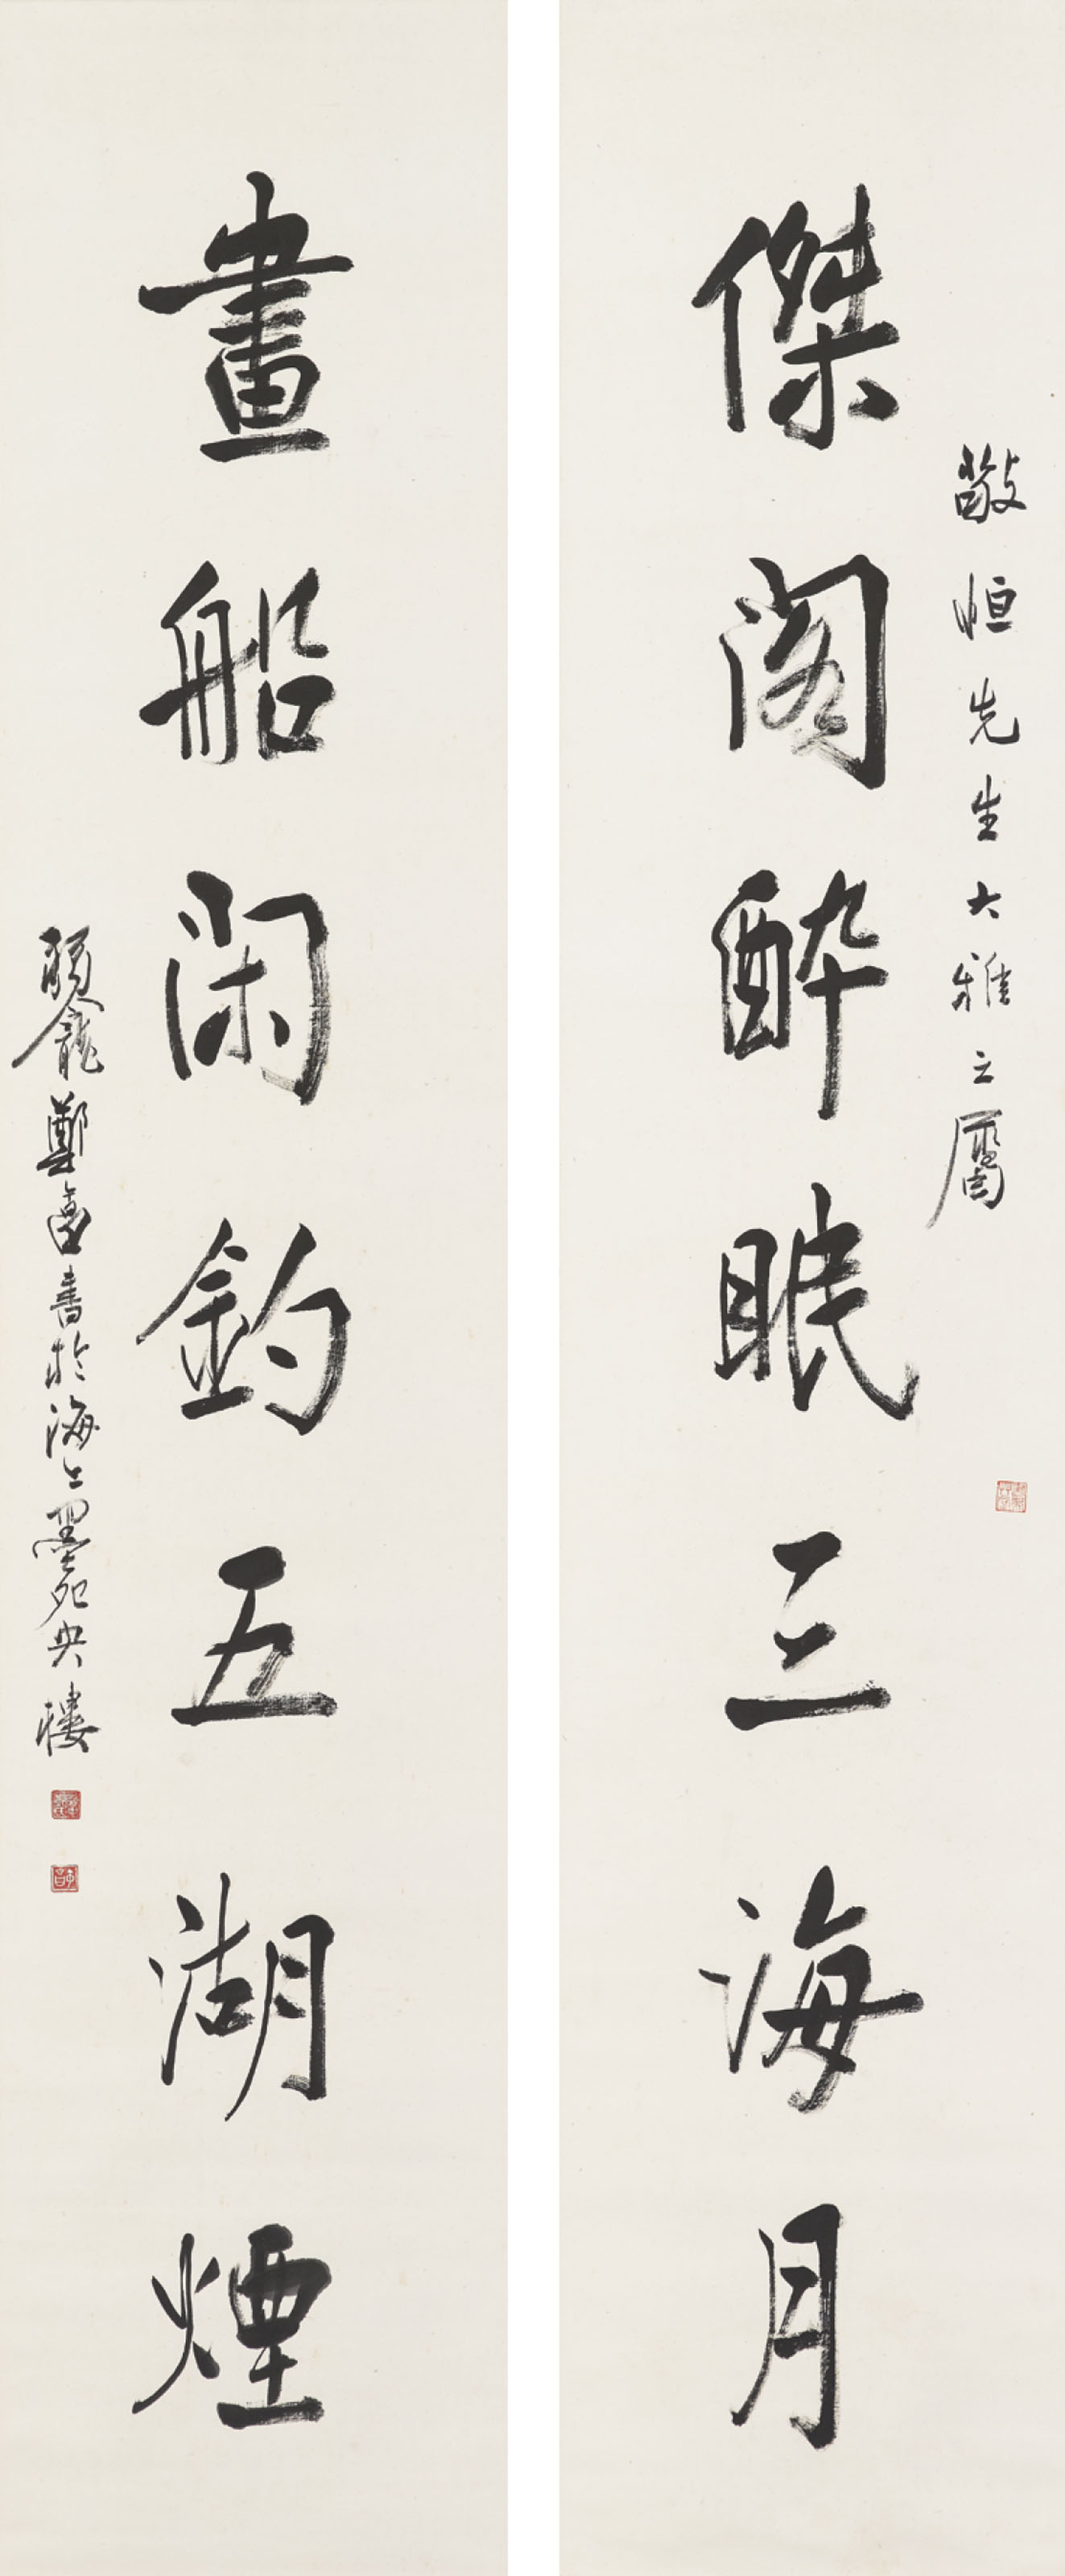 敬恒先生大雅之屬
傑閣醉眠三海月
畫船閑釣五湖煙
鄭
書於海上墨苑央樓